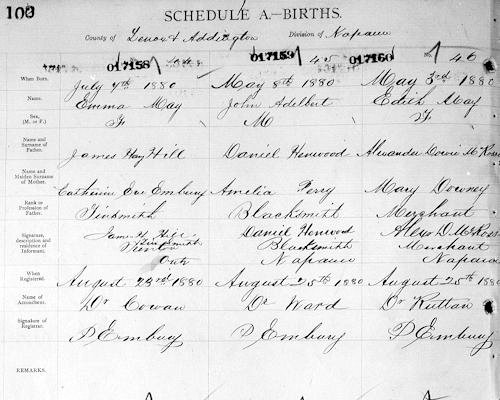 100
SCHEDULE A.—BIRTHS.
County of Lenox & Addington Division of Napanee
017158 017159 45 017160 No. 46
When Born. July 4th 1880 May 8th 1880 May 3rd 1880
Name. Emma May John Adelbert Edith May
Sex, (M. or F.) F M F
Name and Surname of Father. James Hill Daniel Henwood Alexander McRoss
Name and Maiden Surname of Mother. Catherine Eve Embury Amelia Perry Mary Downey
Rank or Profession of Father. Tinsmith Blacksmith Merchant
Signature, description and residence of Informant. James H Hill Tinsmith Trenton Ont Daniel Henwood Blacksmith Napanee Alex D. McRoss Merchant Napanee
When Registered. August 23rd 1880 August 25th 1880 August 25th 1880
Name of Accoucheur. Dr Cowan Dr Ward Dr Ruttan
Signature of Registrar. P Embury P Embury P Embury
REMARKS.